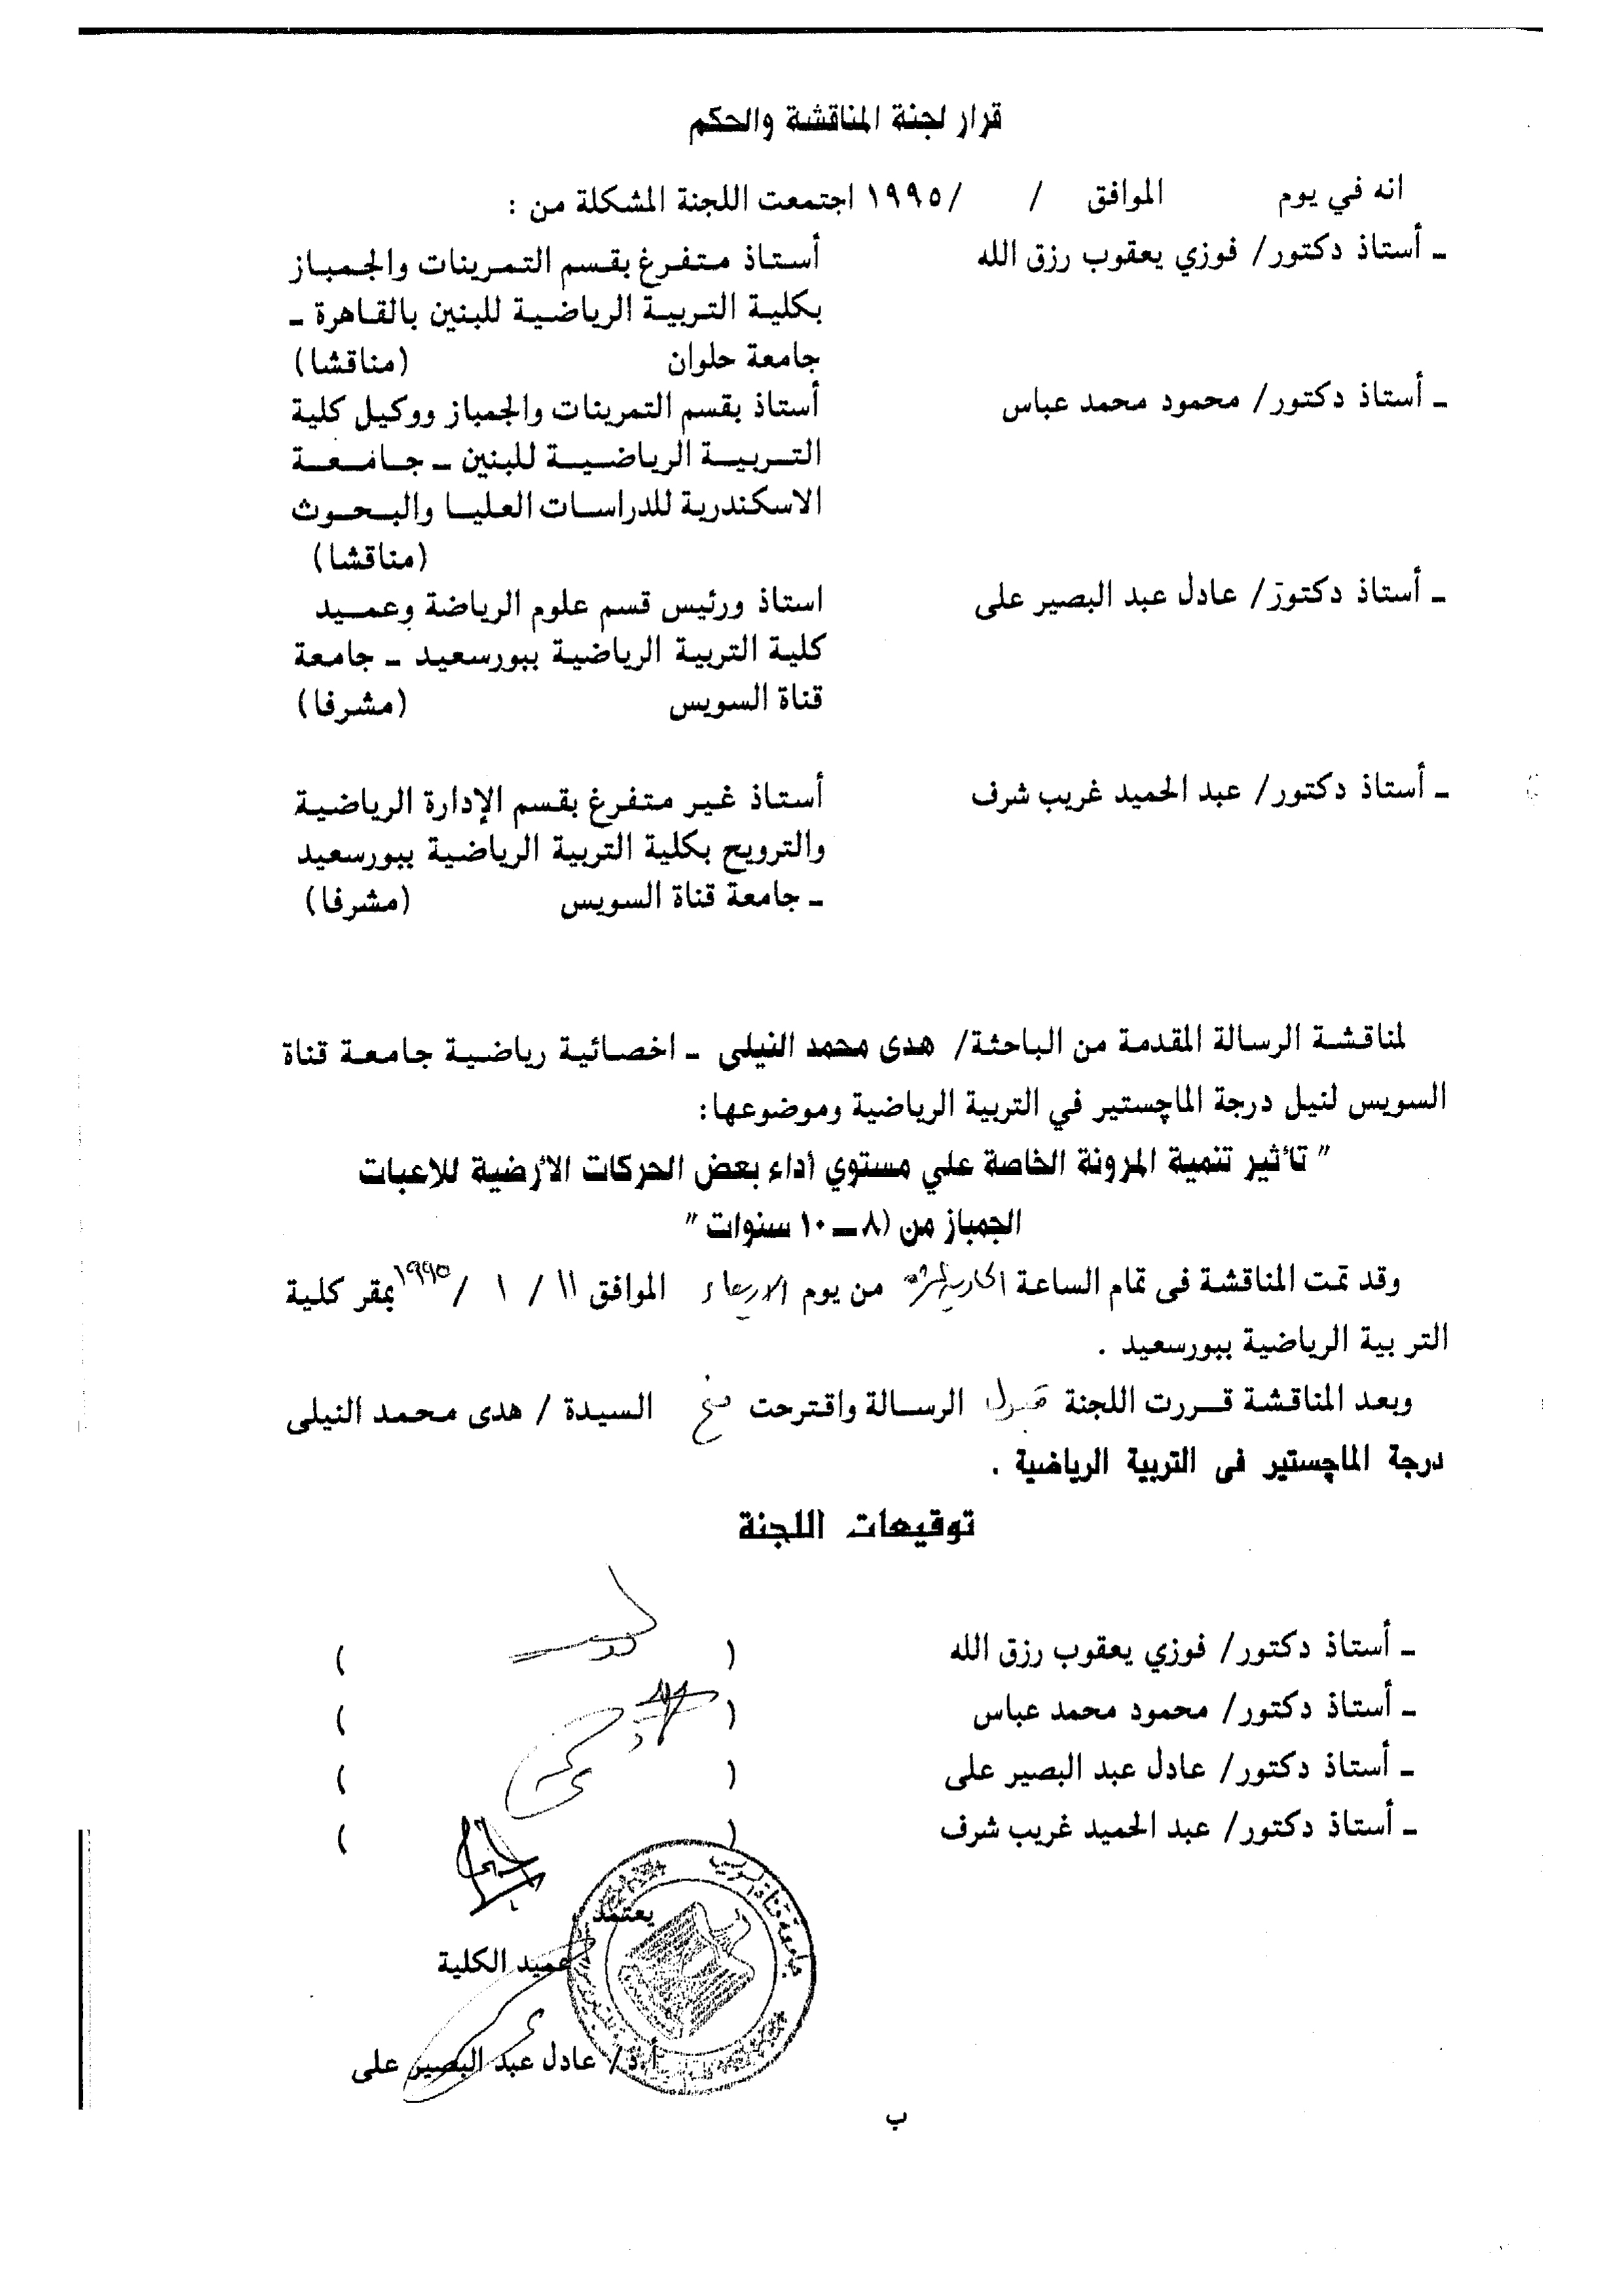 قرار لجنة المناقشة والحكم
انه في يوم الموافق / /١٩٩٥ اجتمعت اللجنة المشكلة من :
ـ أستاذ دكتور/ فوزي يعقوب رزق الله أستاذ متفرغ بقسم التمرينات والجمباز
بكلية التربية الرياضية للبنين بالقاهرة ـ
جامعة حلوان (مناقشا)
ـ أستاذ دكتور/ محمود محمد عباس أستاذ بقسم التمرينات والجمباز ووكيل كلية
التربية الرياضية للبنين ـ جامعة
الاسكندرية للدراسات العليا والبحوث
(مناقشا)
ـ أستاذ دكتور/ عادل عبد البصير على استاذ ورئيس قسم علوم الرياضة وعميد
كلية التربية الرياضية ببورسعيد ـ جامعة
قناة السويس (مشرفا)
ـ أستاذ دكتور/ عبد الحميد غريب شرف أستاذ غير متفرغ بقسم الإدارة الرياضية
والترويح بكلية التربية الرياضية ببورسعيد
ـ جامعة قناة السويس (مشرفا)
لمناقشة الرسالة المقدمة من الباحثة/ هدى محمد النيلى ـ اخصائية رياضية جامعة قناة
السويس لنيل درجة الماچستير في التربية الرياضية وموضوعها:
" تأثير تنمية المرونة الخاصة علي مستوي أداء بعض الحركات الأرضية للاعبات
الجمباز من (٨ ـ ١٠ سنوات "
وقد تمت المناقشة فى تمام الساعة الحادية عشر من يوم الاربعاء الموافق ١١ / ١ / ١٩٩٥ بمقر كلية
التربية الرياضية ببورسعيد .
وبعد المناقشة قررت اللجنة قبول الرسالة واقترحت منح السيدة / هدى محمد النيلى
درجة الماچستير فى التربية الرياضية .
توقيعات اللجنة
ـ أستاذ دكتور/ فوزي يعقوب رزق الله ( )
ـ أستاذ دكتور/ محمود محمد عباس ( )
ـ أستاذ دكتور/ عادل عبد البصير على ( )
ـ أستاذ دكتور/ عبد الحميد غريب شرف ( )
جامعة قناة السويس
يعتمد ،
عميد الكلية
أ.د/ عادل عبد البصير على
ب